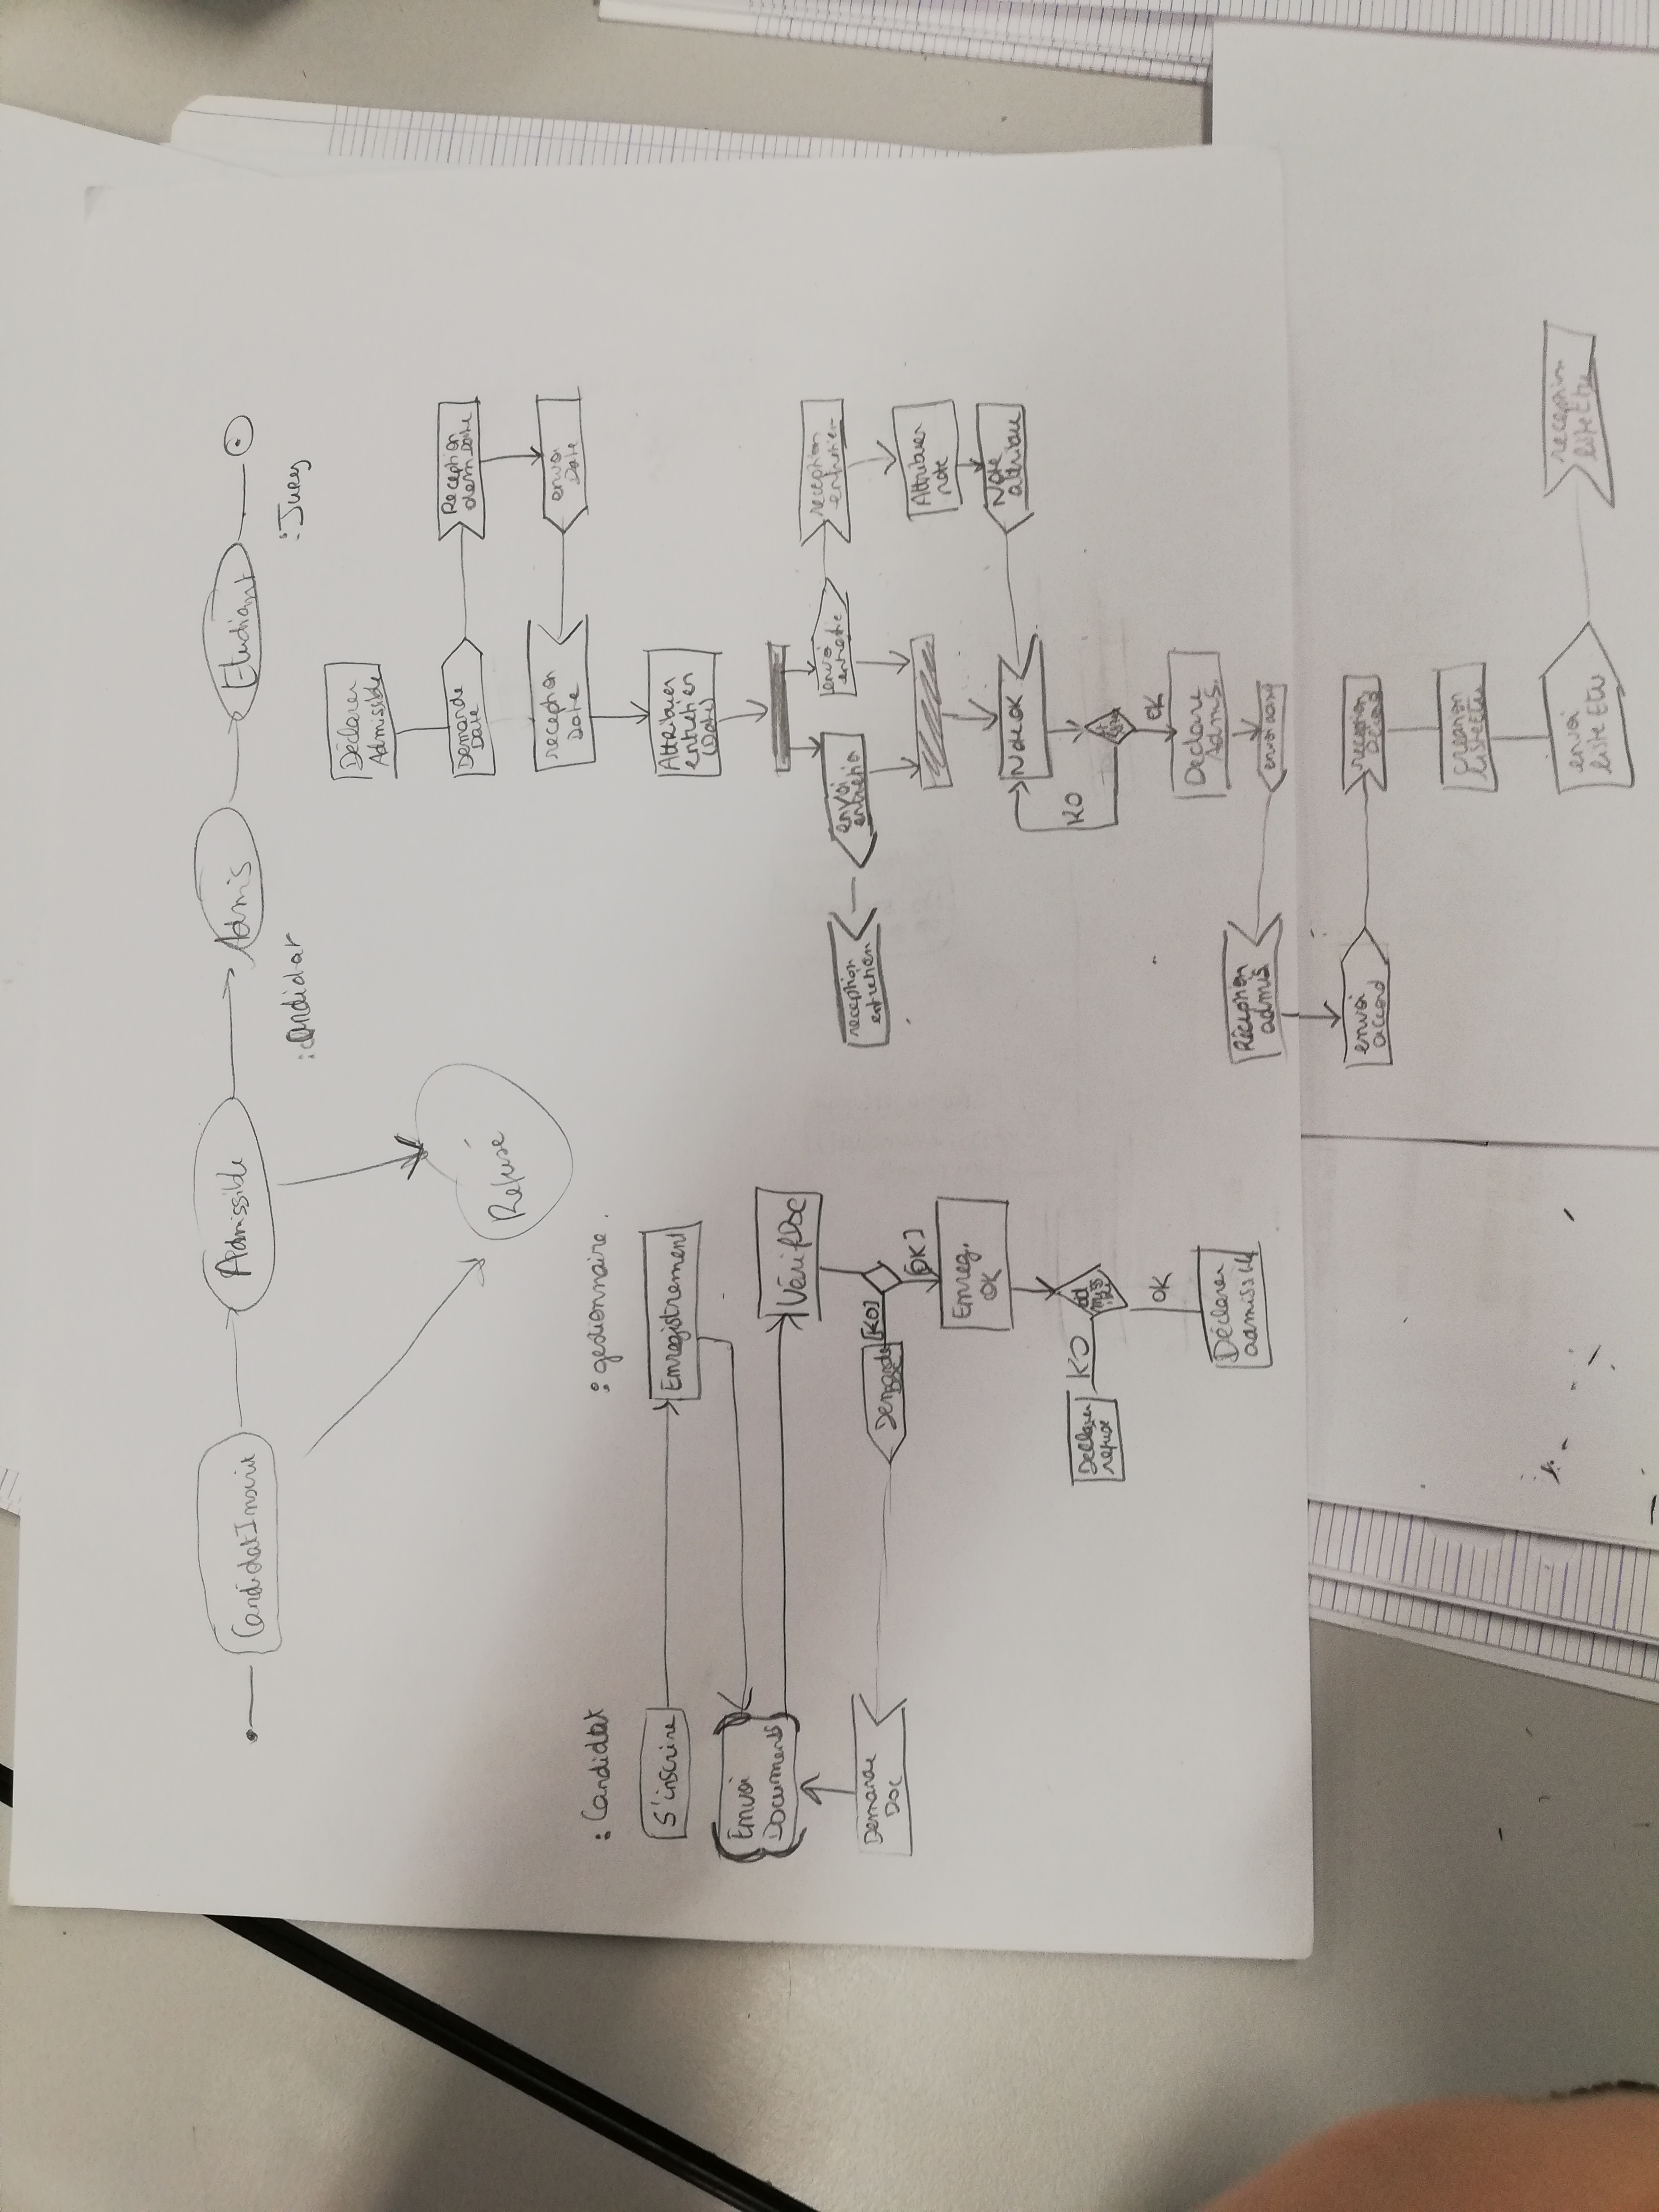 CandidatInscrit
Admissible
Admis
Etudiant
Refusé
: Candidat
: gestionnaire.
S'inscrire
Enregistrement
Envoi
Documents
VérifDoc
[KO]
[OK]
Demande
Doc
Demande
Enreg.
OK
KO
OK
Declarer
refusé
Déclarer
admissible
: candidat
: Jury
Déclarer
Admissible
Demande
Date
Reception
demdate
reception
Date
envoi
Date
Attribuer
entretien
(Date)
reception
entretien
envoi
entretien
envoi
entretie
reception
entretien
Attribuer
note
Note
attribue
Note OK
KO
OK
Déclare
Admis.
Réception
admis
envoi
accord
reception
accord
creation
listeEtu
envoi
listeEtu
reception
listeEtu